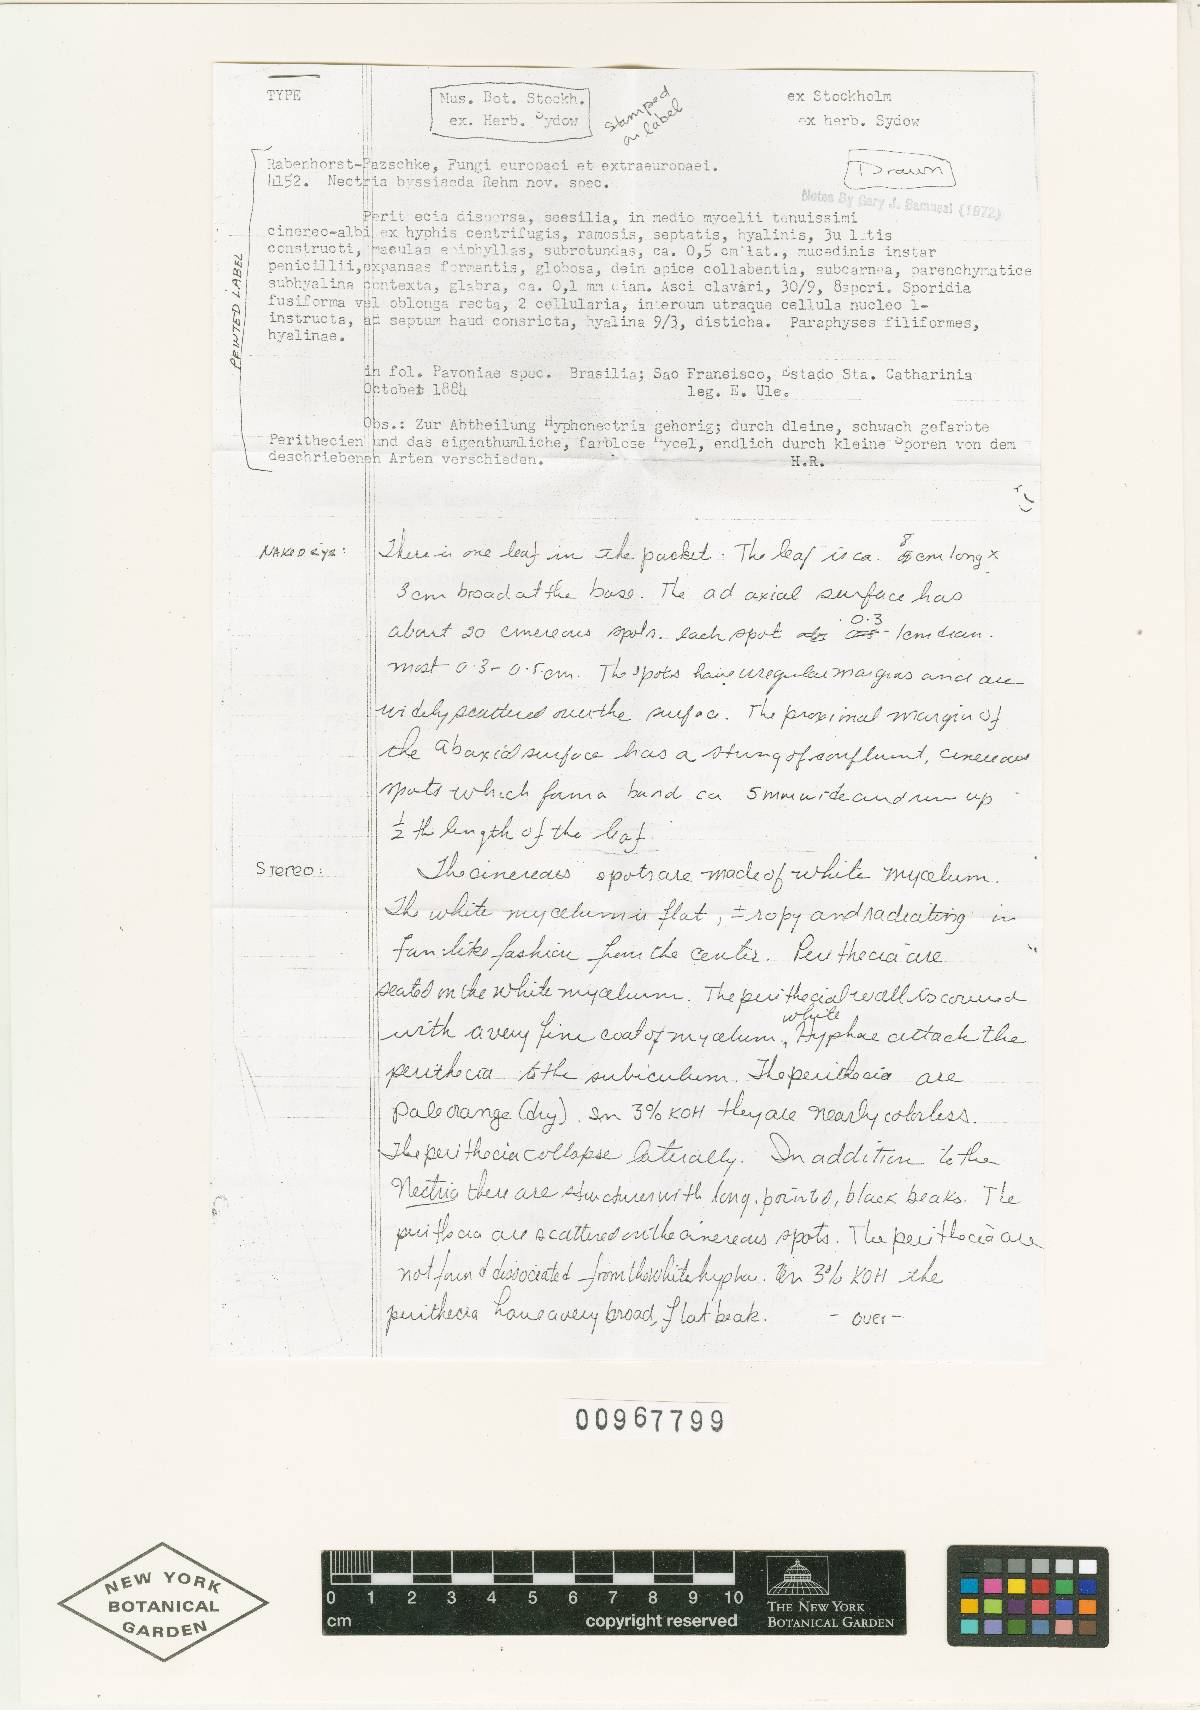 TYPE
Mus. Bot. Stockh.
ex. Herb. Sydow
stamped
on label
ex Stockholm
ex herb. Sydow
Drawn
Notes By Gary J. Samuels (1972)
PRINTED LABEL
Rabenhorst-Pazschke, Fungi europaei et extraeuropaei.
4152. Nectria byssiseda Rehm nov. spec.
Perit ecia dispersa, sessilia, in medio mycelii tenuissimi
cinereo-albi ex hyphis centrifugis, ramosis, septatis, hyalinis, 3u l tis
constructi, maculas epiphyllas, subrotundas, ca. 0,5 cm lat., mucedinis instar
penicillii, expansas formentis, globosa, dein apice collabentia, subcarnea, parenchymatice
subhyalina contexta, glabra, ca. 0,1 mm diam. Asci clavari, 30/9, 8spori. Sporidia
fusiforma vel oblonga recta, 2 cellularia, interdum utraque cellula nucleo 1-
instructa, ad septum haud consricta, hyalina 9/3, disticha. Paraphyses filiformes,
hyalinae.
in fol. Pavoniae spec. Brasilia; Sao Francisco, Estado Sta. Catharinia
October 1884 leg. E. Ule.
Obs.: Zur Abtheilung Hyphonectria gehorig; durch dleine, schwach gefarbte
Perithecien und das eigenthumliche, farblose Mycel, endlich durch kleine Sporen von dem
deschriebenen Arten verschieden. H.R.
NAKED EYE: There is one leaf in the packet. The leaf is ca. 8 cm long x
3 cm broad at the base. The ad axial surface has
about 20 cinereous spots. Each spot 0.3 - 1cm diam.
most 0.3 - 0.5 cm. The spots have irregular margins and are
widely scattered over the surface. The proximal margin of
the abaxial surface has a string of confluent, cinereous
spots which form a band ca 5mm wide and run up
1/2 the length of the leaf
Stereo: The cinereous spots are made of white mycelium.
The white mycelium is flat, ± ropy and radiating in
fan-like fashion from the center. Perithecia are
seated on the white mycelium. The perithecial wall is covered
with a very fine coat of mycelium. white Hyphae attach the
perithecia to the subiculum. The perithecia are
pale orange (dry). In 3% KOH they are nearly colorless.
The perithecia collapse laterally. In addition to the
Nectria there are structures with long, pointed, black beaks. The
perithecia are scattered on the cinereous spots. The perithecia are
not found dissociated from the white hyphae. In 3% KOH the
perithecia have a very broad, flat beak. - over -
00967799
NEW YORK
BOTANICAL
GARDEN
0 1 2 3 4 5 6 7 8 9 10
cm copyright reserved
THE NEW YORK
BOTANICAL GARDEN